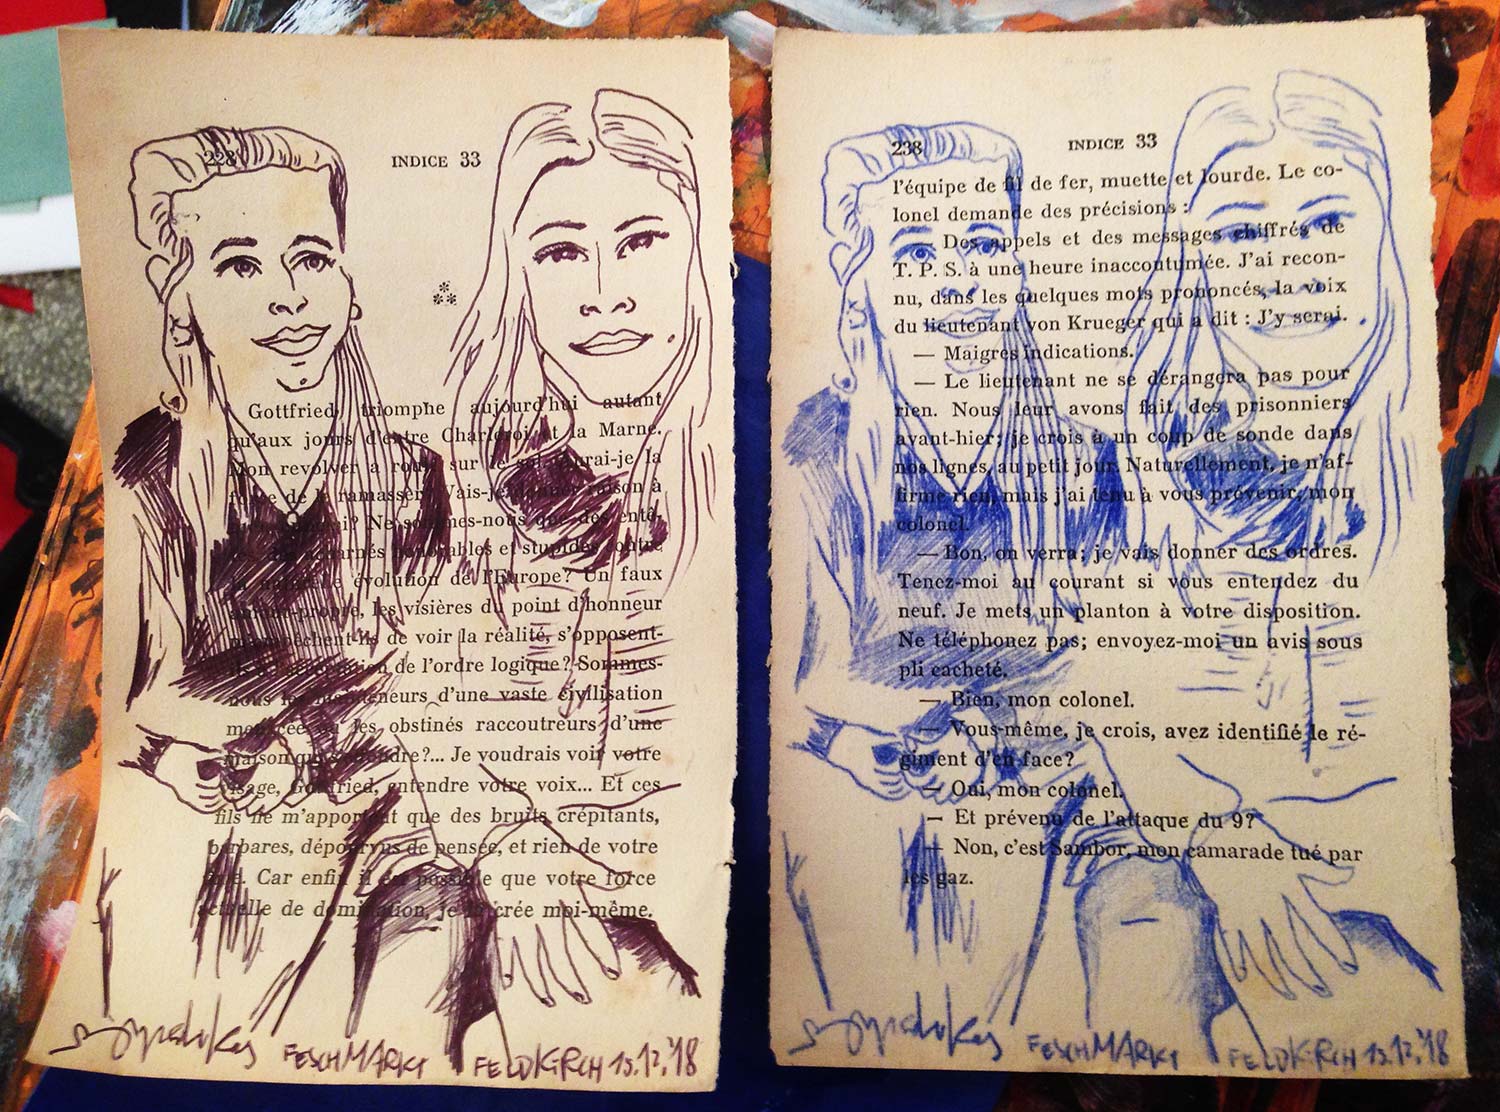 228
INDICE 33
⁂
Gottfried triomphe aujourd'hui autant
qu'aux jours d'entre Charleroi et la Marne.
Mon revolver a roulé sur le sol. Aurai-je la
force de le ramasser? Vais-je donner raison à
Ne sommes-nous que des enté-
et stupides contre
évolution de l'Europe? Un faux
amour-propre, les visières du point d'honneur
m'empêchent-ils de voir la réalité, s'opposent-
de l'ordre logique? Sommes-
nous les d'une vaste civilisation
les obstinés raccoutreurs d'une
maison qui ?... Je voudrais voir votre
visage, Gottfried, entendre votre voix... Et ces
fils ne m'apportent que des bruits crépitants,
barbares, dépourvus de pensée, et rien de votre
Car enfin il est possible que votre force
actuelle de domination, je la crée moi-même.
FESCHMARKT FELDKIRCH 15.12.'18
238
INDICE 33
l'équipe de fil de fer, muette et lourde. Le co-
lonel demande des précisions :
— Des appels et des messages chiffrés de
T. P. S. à une heure inaccoutumée. J'ai recon-
nu, dans les quelques mots prononcés, la voix
du lieutenant von Krueger qui a dit : J'y serai.
— Maigres indications.
— Le lieutenant ne se dérangera pas pour
rien. Nous leur avons fait des prisonniers
avant-hier; je crois à un coup de sonde dans
nos lignes, au petit jour. Naturellement, je n'af-
firme rien, mais j'ai tenu à vous prévenir, mon
colonel.
— Bon, on verra; je vais donner des ordres.
Tenez-moi au courant si vous entendez du
neuf. Je mets un planton à votre disposition.
Ne téléphonez pas; envoyez-moi un avis sous
pli cacheté.
— Bien, mon colonel.
— Vous-même, je crois, avez identifié le ré-
giment d'en face?
— Oui, mon colonel.
— Et prévenu de l'attaque du 9?
— Non, c'est Sambor, mon camarade tué par
les gaz.
FESCHMARKT FELDKIRCH 15.12.'18